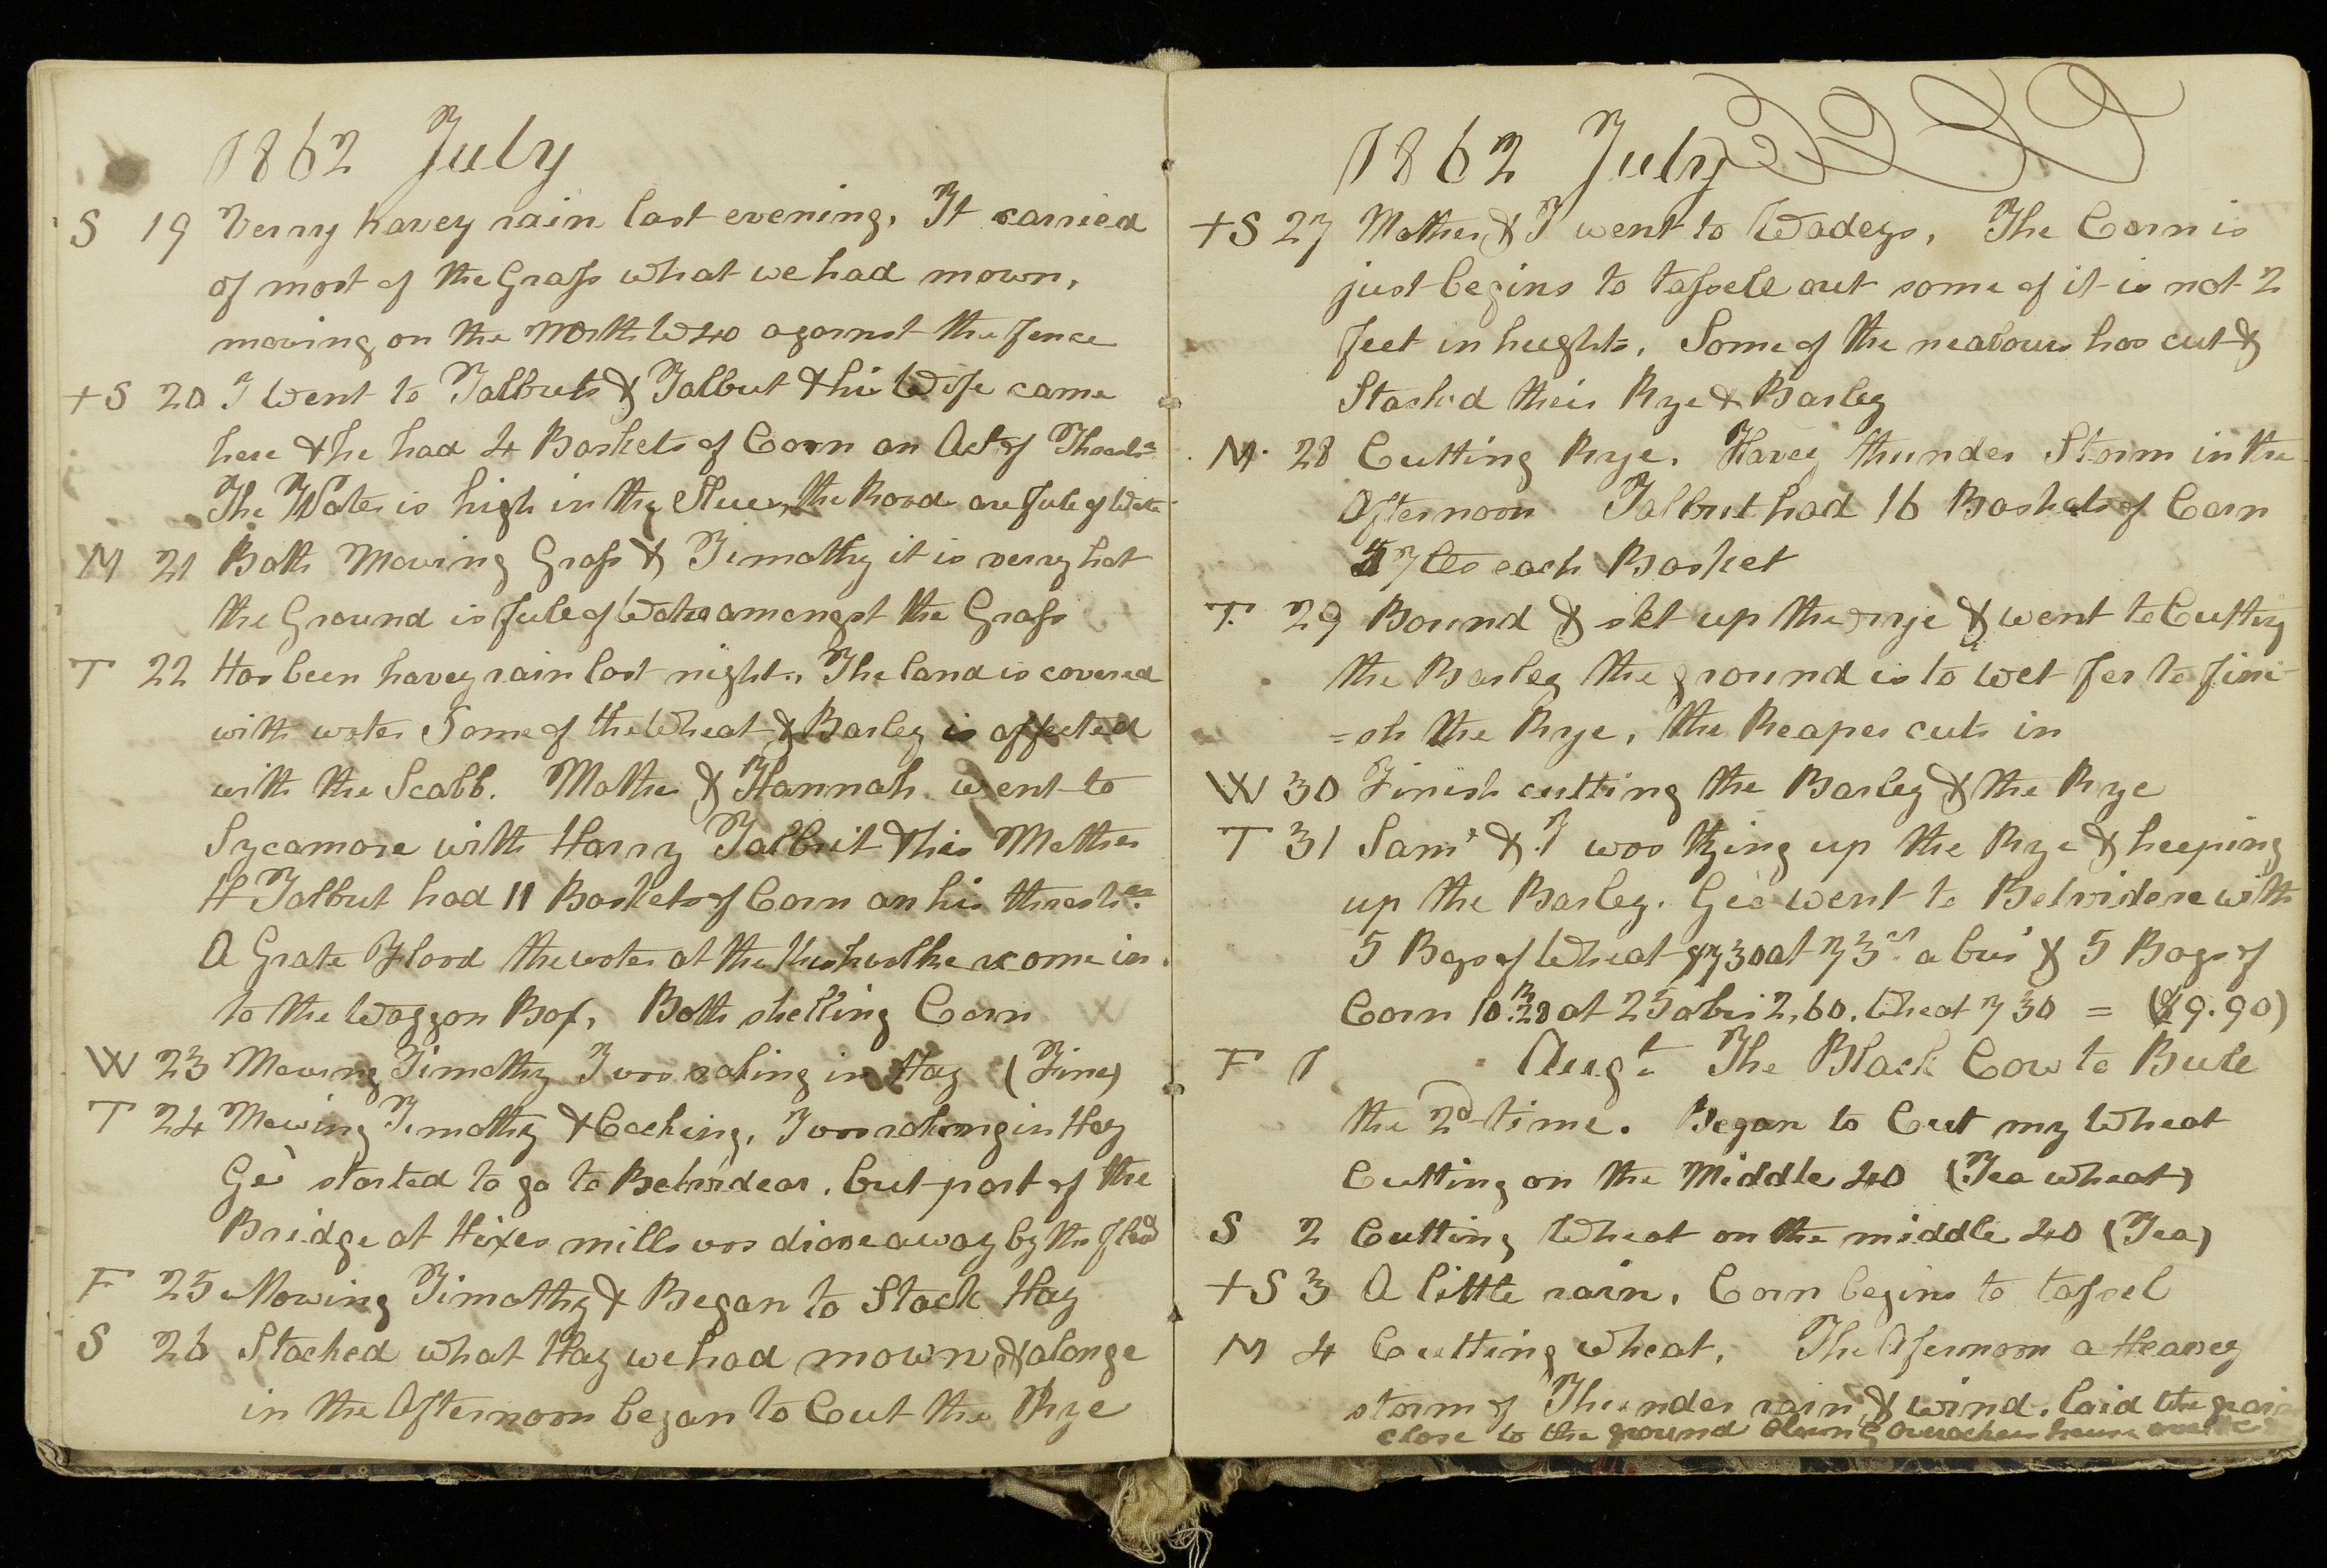 1862 July
S 19 Verry havey rain last evening, It carried
of most of the Grass what we had mown,
mowing on the North W 40 against the fence
+S 20 I Went to Talbuts & Talbut & his Wife came
here & he had 4 Baskets of Corn on Act of
The Water is high in the the Road are fule of Water
M 21 Both Mowing Grass & Timothy it is verry hot
the Ground is fule of Water amongst the Grass
T 22 Has been havey rain last night., The land is covered
with water Some of the Wheat & Barley is affected
with the Scabb. Mother & Hannah went to
Sycamore with Harry Talbut & his Mother
H Talbut had 11 Baskets of Corn on his
A Grate Flood the water at the come in
to the Waggon Box, Both shelling Corn
W 23 Mowing Timothy I was raking in Hay (Fine)
T 24 Mewing Timothy & Cocking, I was raking in Hay
Geo started to go to Belvidear, but part of the
Bridge at Hixes mills was drove away by the flod
F 25 Mowing Timothy & Began to Stack Hay
S 26 Stacked what Hay we had mown, & alonge
in the Afternoon began to Cut the Rye
1862 July
+S 27 Mother & I went to Wadeys, The Corn is
just begins to tassele out some of it is not 2
feet in heeght, Some of the neabours has cut &
Stacked their Rye & Barley
M 28 Cutting Rye, Havey thunder Storm in the
Afternoon Talbut had 16 Baskets of Corn
37 lbs each Basket
T. 29 Bound & set up the rye & went to Cutting
the Barley the ground is to wet for to fini-
=sh the Rye, the Reaper cuts in
W 30 Finish cutting the Barley & the Rye
T 31 Sam & I was tying up the Rye & heeping
up the Barley. Geo went to Belvidere with
5 Bags of Wheat 30 at 73 cts a bus & 5 Bags of
Corn 10.28 at 25 a bus 2,60. Wheat 7 30 = ($9.90)
F 1 Augt. The Black Cow to Bule
the 2d time. Began to Cut my Wheat
Cutting on the Middle 40 (Tea wheat)
S 2 Cutting Wheat on the middle 40 (Tea)
+S 3 A little rain, Corn begins to tassel
M 4 Cutting wheat, The Afernoon a Heavey
storm of Thunder rain & wind, laid the grain
close to the ground house